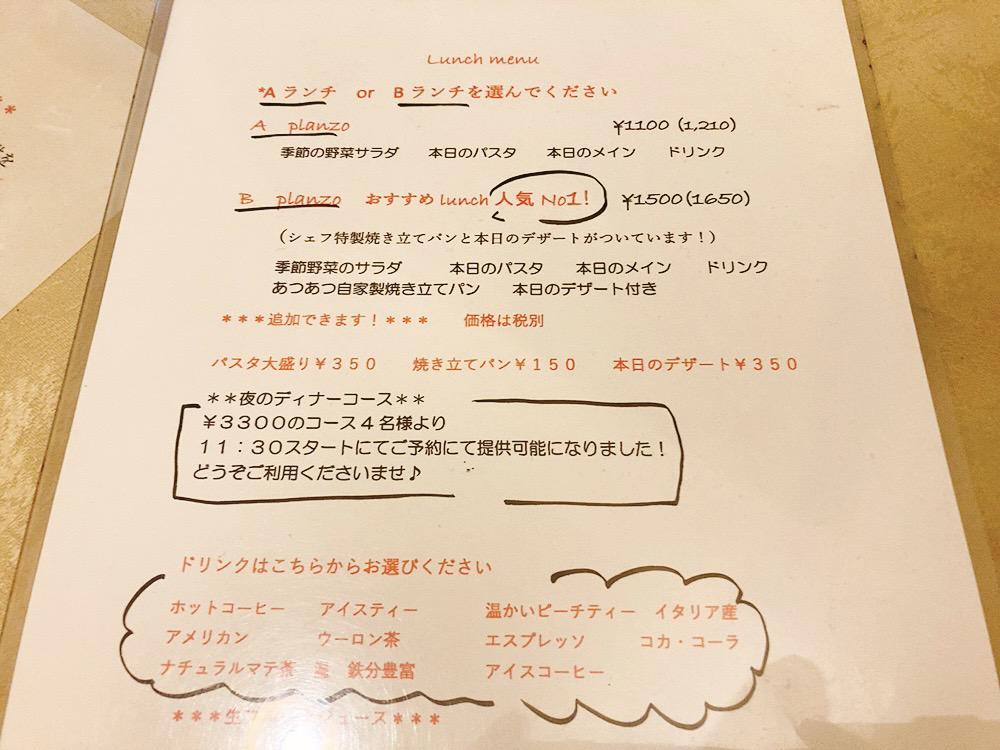 Lunch menu
*Aランチ or Bランチを選んでください
A planzo ¥1100 (1,210)
季節の野菜サラダ 本日のパスタ 本日のメイン ドリンク
B planzo おすすめ lunch 人気 No1! ¥1500(1650)
（シェフ特製焼き立てパンと本日のデザートがついています！）
季節野菜のサラダ 本日のパスタ 本日のメイン ドリンク
あつあつ自家製焼き立てパン 本日のデザート付き
＊＊＊追加できます！＊＊＊ 価格は税別
パスタ大盛り￥３５０ 焼き立てパン￥１５０ 本日のデザート￥３５０
＊＊夜のディナーコース＊＊
￥３３００のコース４名様より
１１：３０スタートにてご予約にて提供可能になりました！
どうぞご利用くださいませ♪
ドリンクはこちらからお選びください
ホットコーヒー アイスティー 温かいピーチティー イタリア産
アメリカン ウーロン茶 エスプレッソ コカ・コーラ
ナチュラルマテ茶 鉄分豊富 アイスコーヒー
＊＊＊生 ュース＊＊＊
を